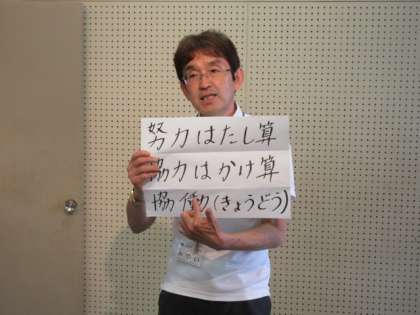 努力はたし算
協力はかけ算
協働(きょうどう)